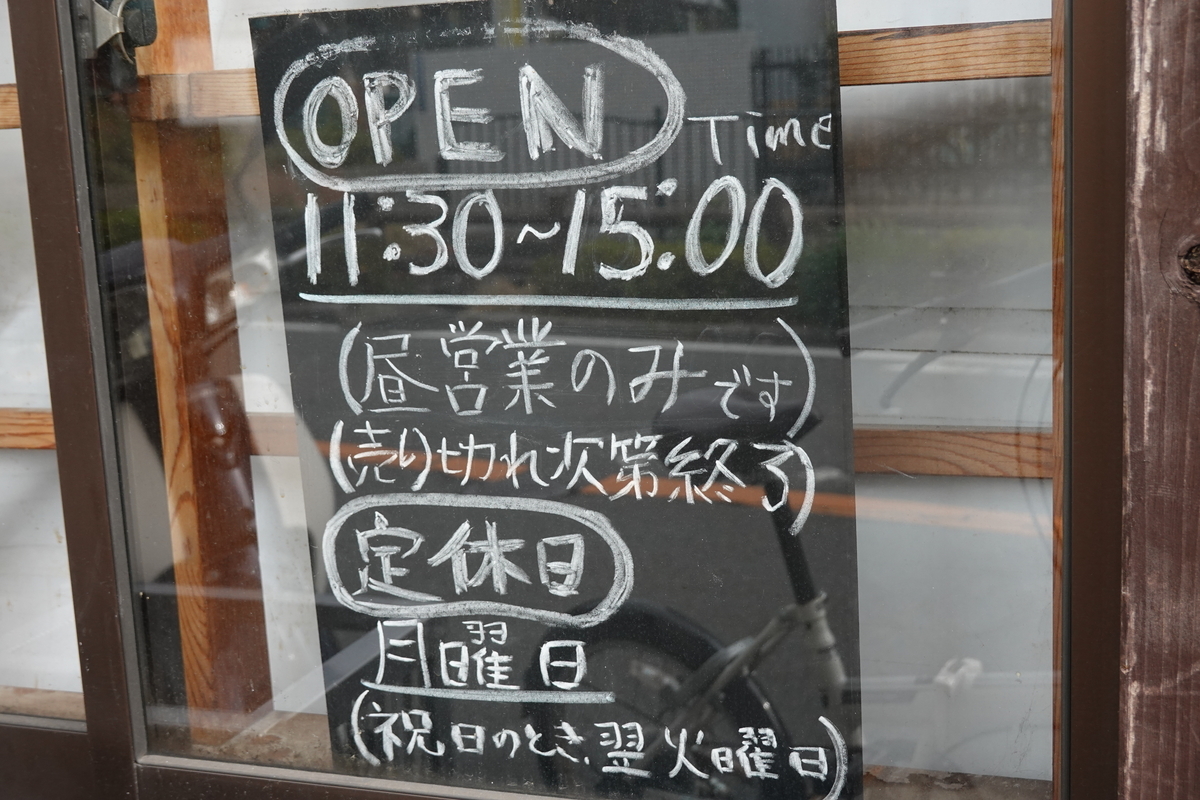 OPEN Time
11:30~15:00
(昼営業のみです)
(売り切れ次第終了)
定休日
月曜日
(祝日のとき、翌火曜日)